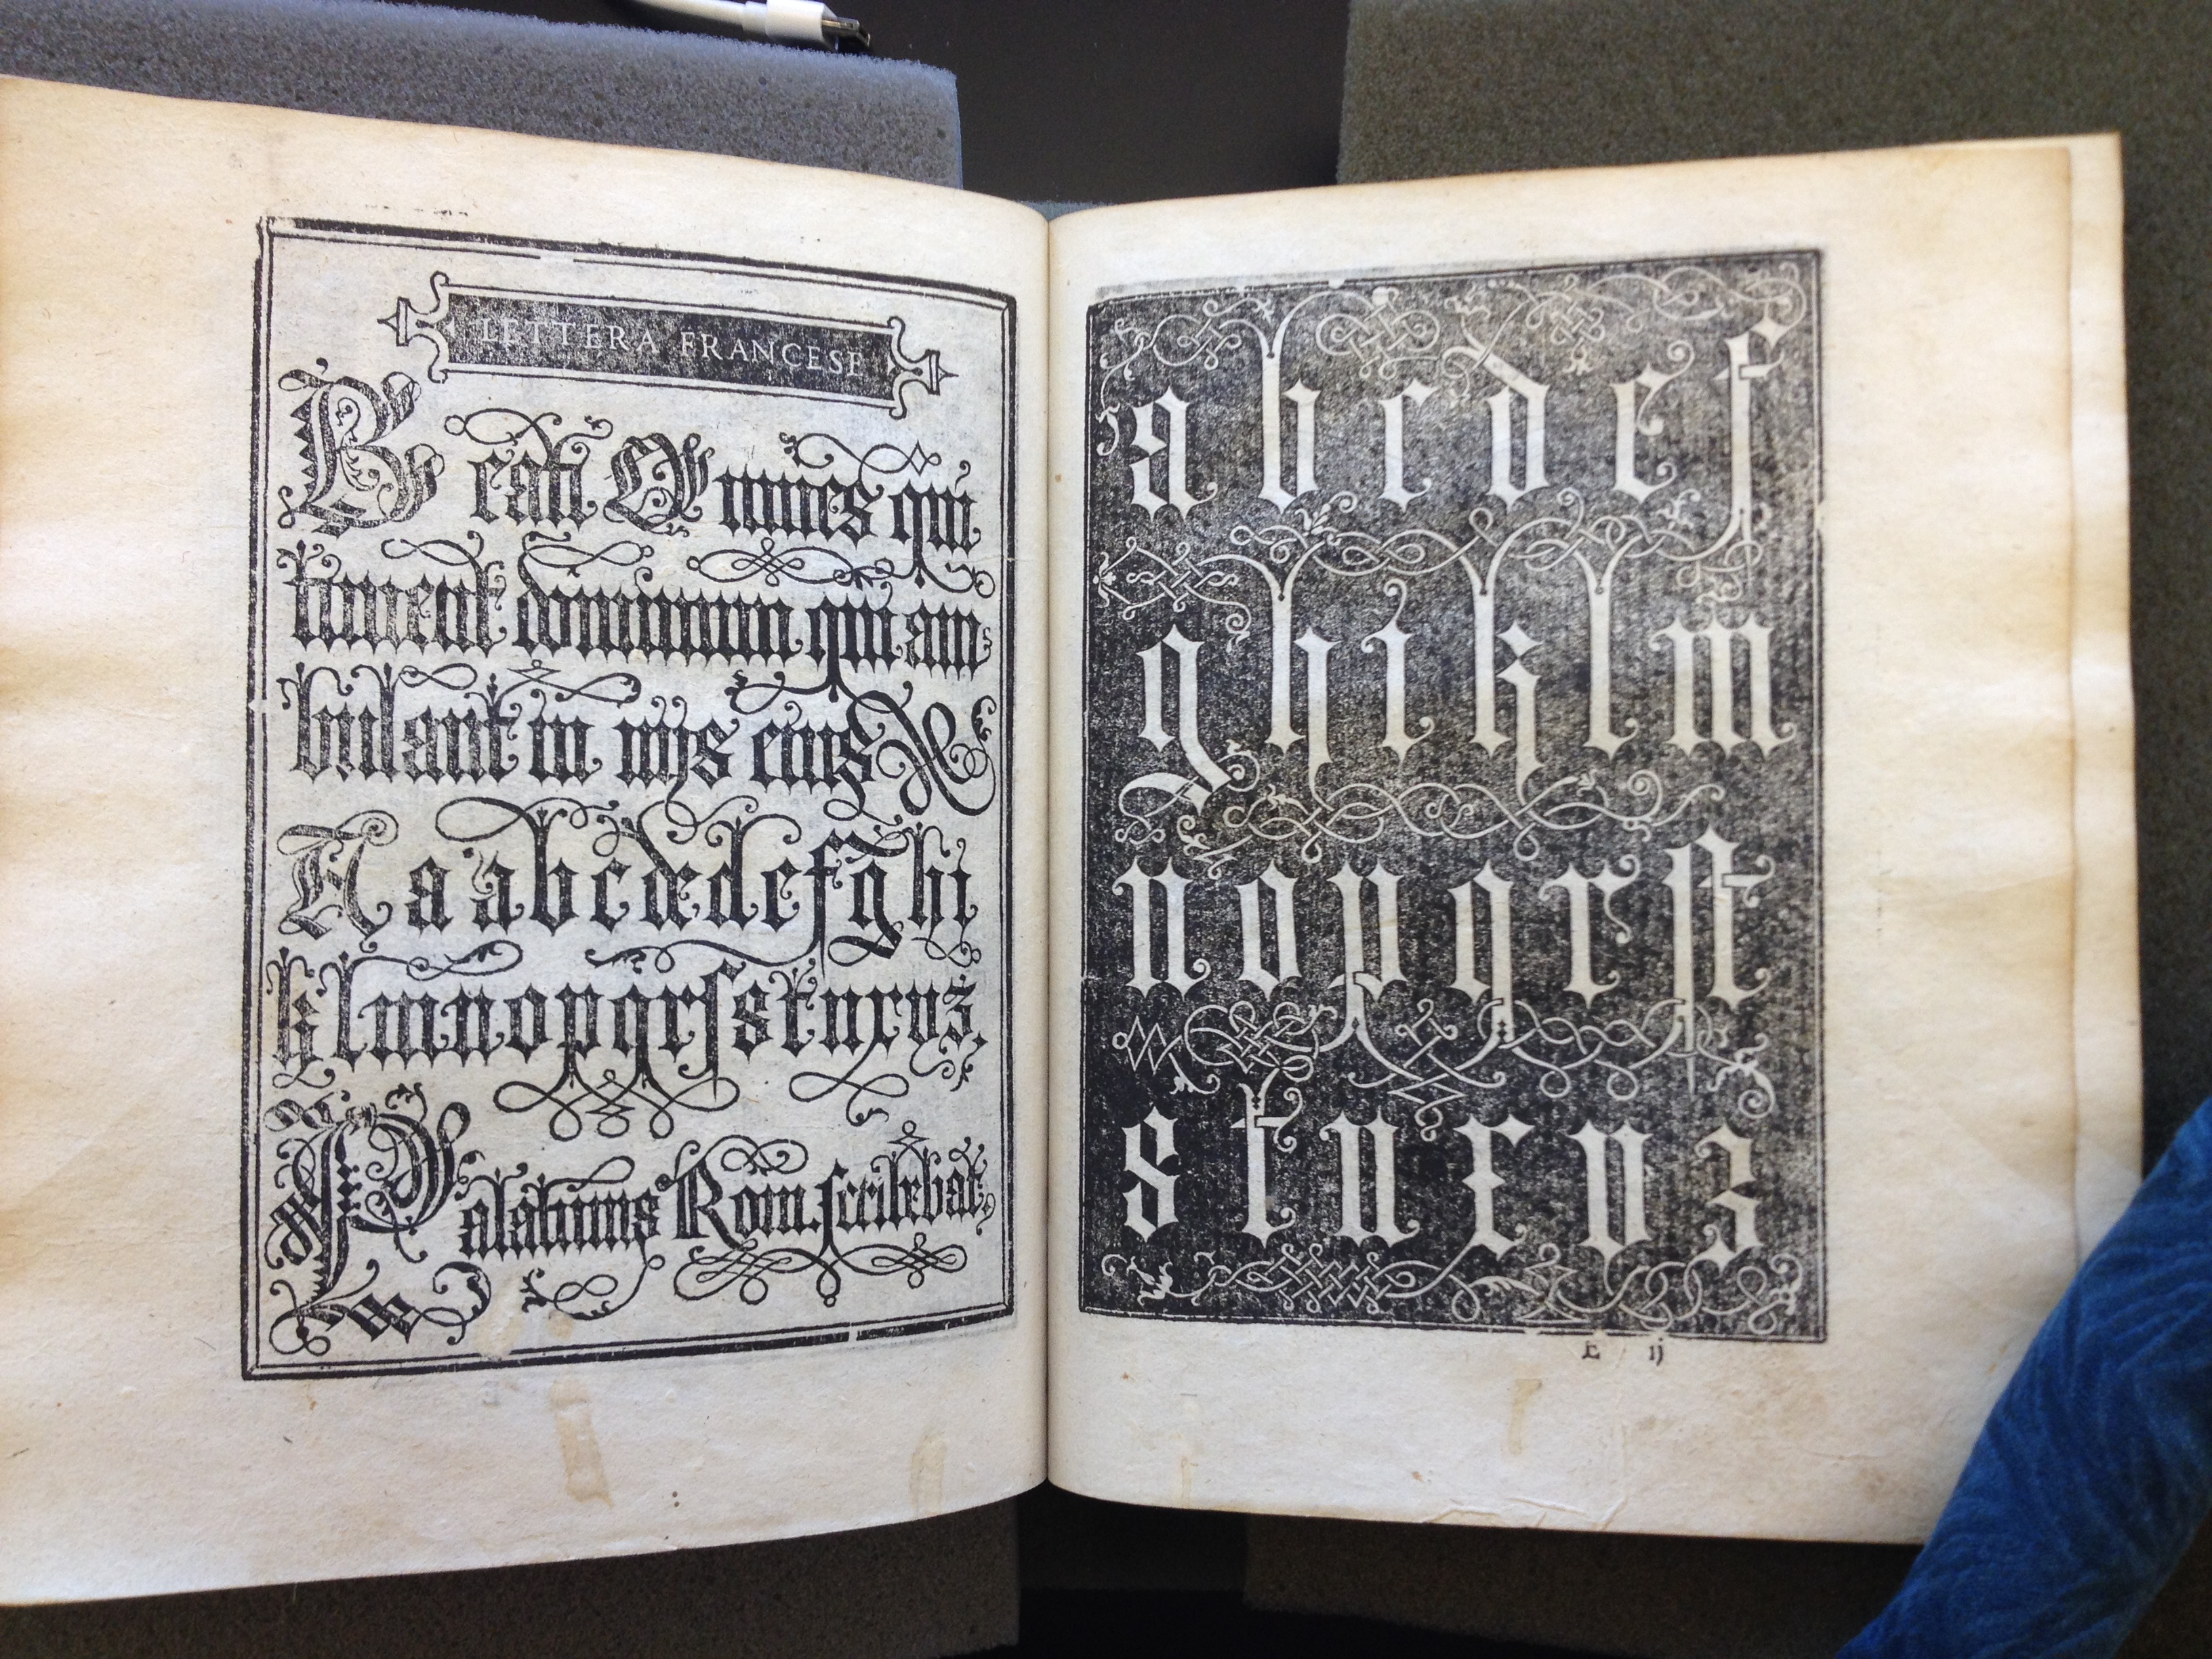 LETTERA FRANCESE
Beati Omnes qui
timent dominum qui am
bulant in vijs eius
A a a b c d e d e f g h i
k l m n o p q r ſ s t u x v z.
Palatinus Rom. scribebat,
a b c d e f
g h i k l m
n o p q r ſt
s t u x v z
E ij